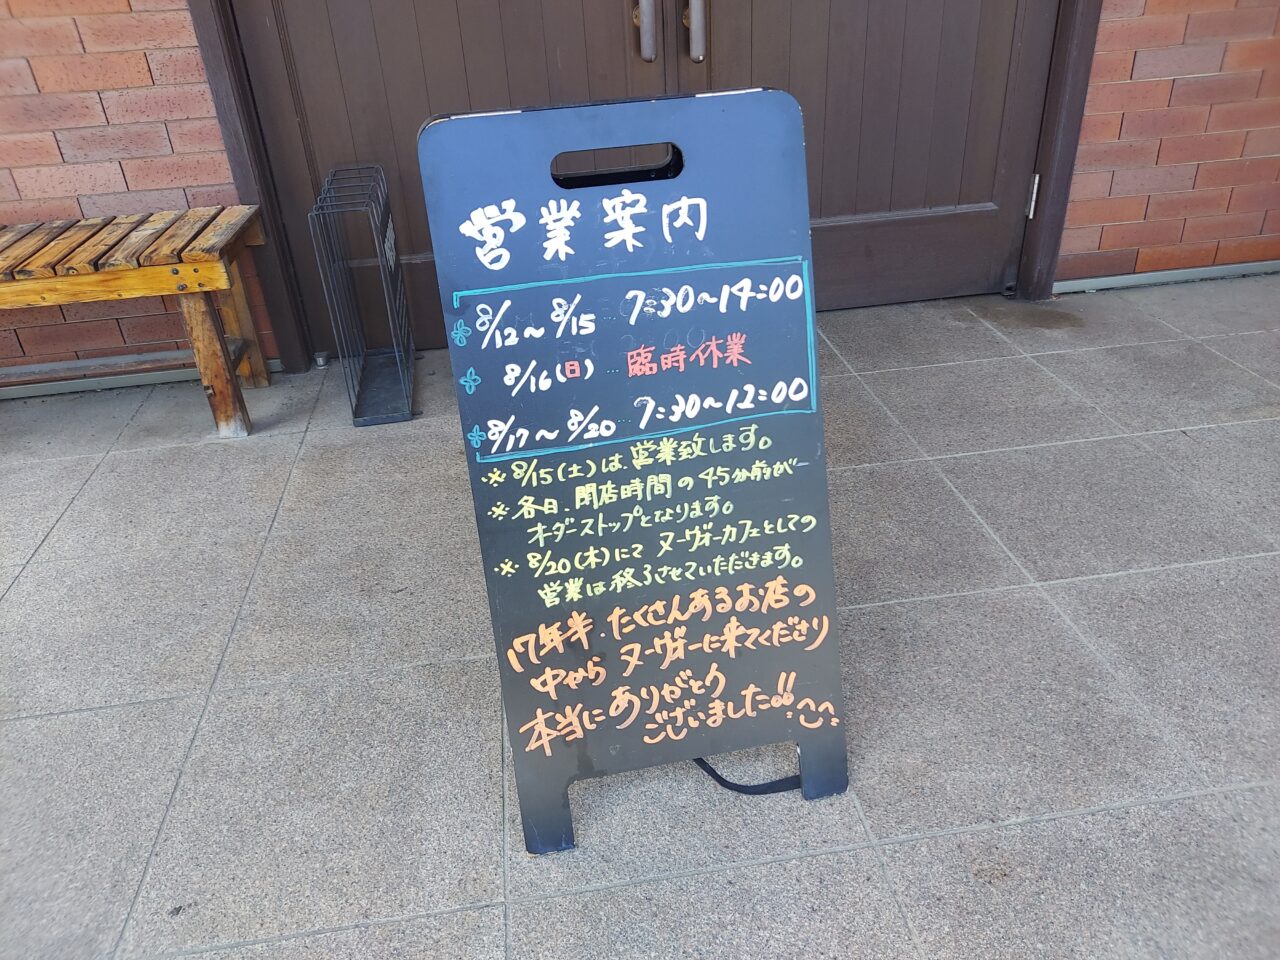 営業案内
8/12～8/15 7:30～14:00
8/16(日)…臨時休業
8/17～8/20…7:30～12:00
※8/15(土)は、営業致します。
※各日、閉店時間の45分前がー
オーダーストップとなります。
※8/20(木)にて ヌーヴォーカフェとしての
営業は終了させていただきます。
17年半、たくさんあるお店の
中から ヌーヴォーに来てくださり
本当に ありがとう
ございました!!